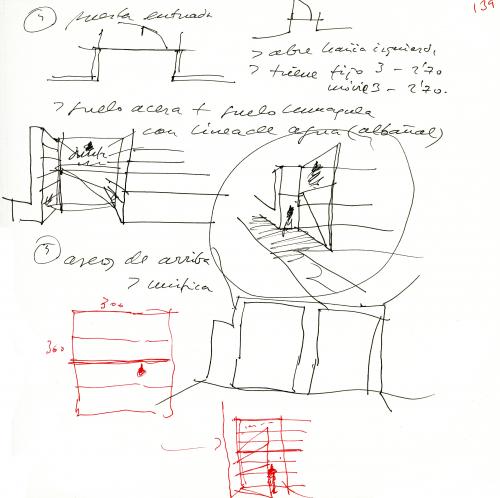 139
4 puerta entrada
> abre hacia izquierda
> tiene fijo 3 - 2'70
móvil 3 - 2'70.
> suelo acera + suelo
con línea de agua (albañal)
dentro
5 aseos de arriba
> unifica
300
300